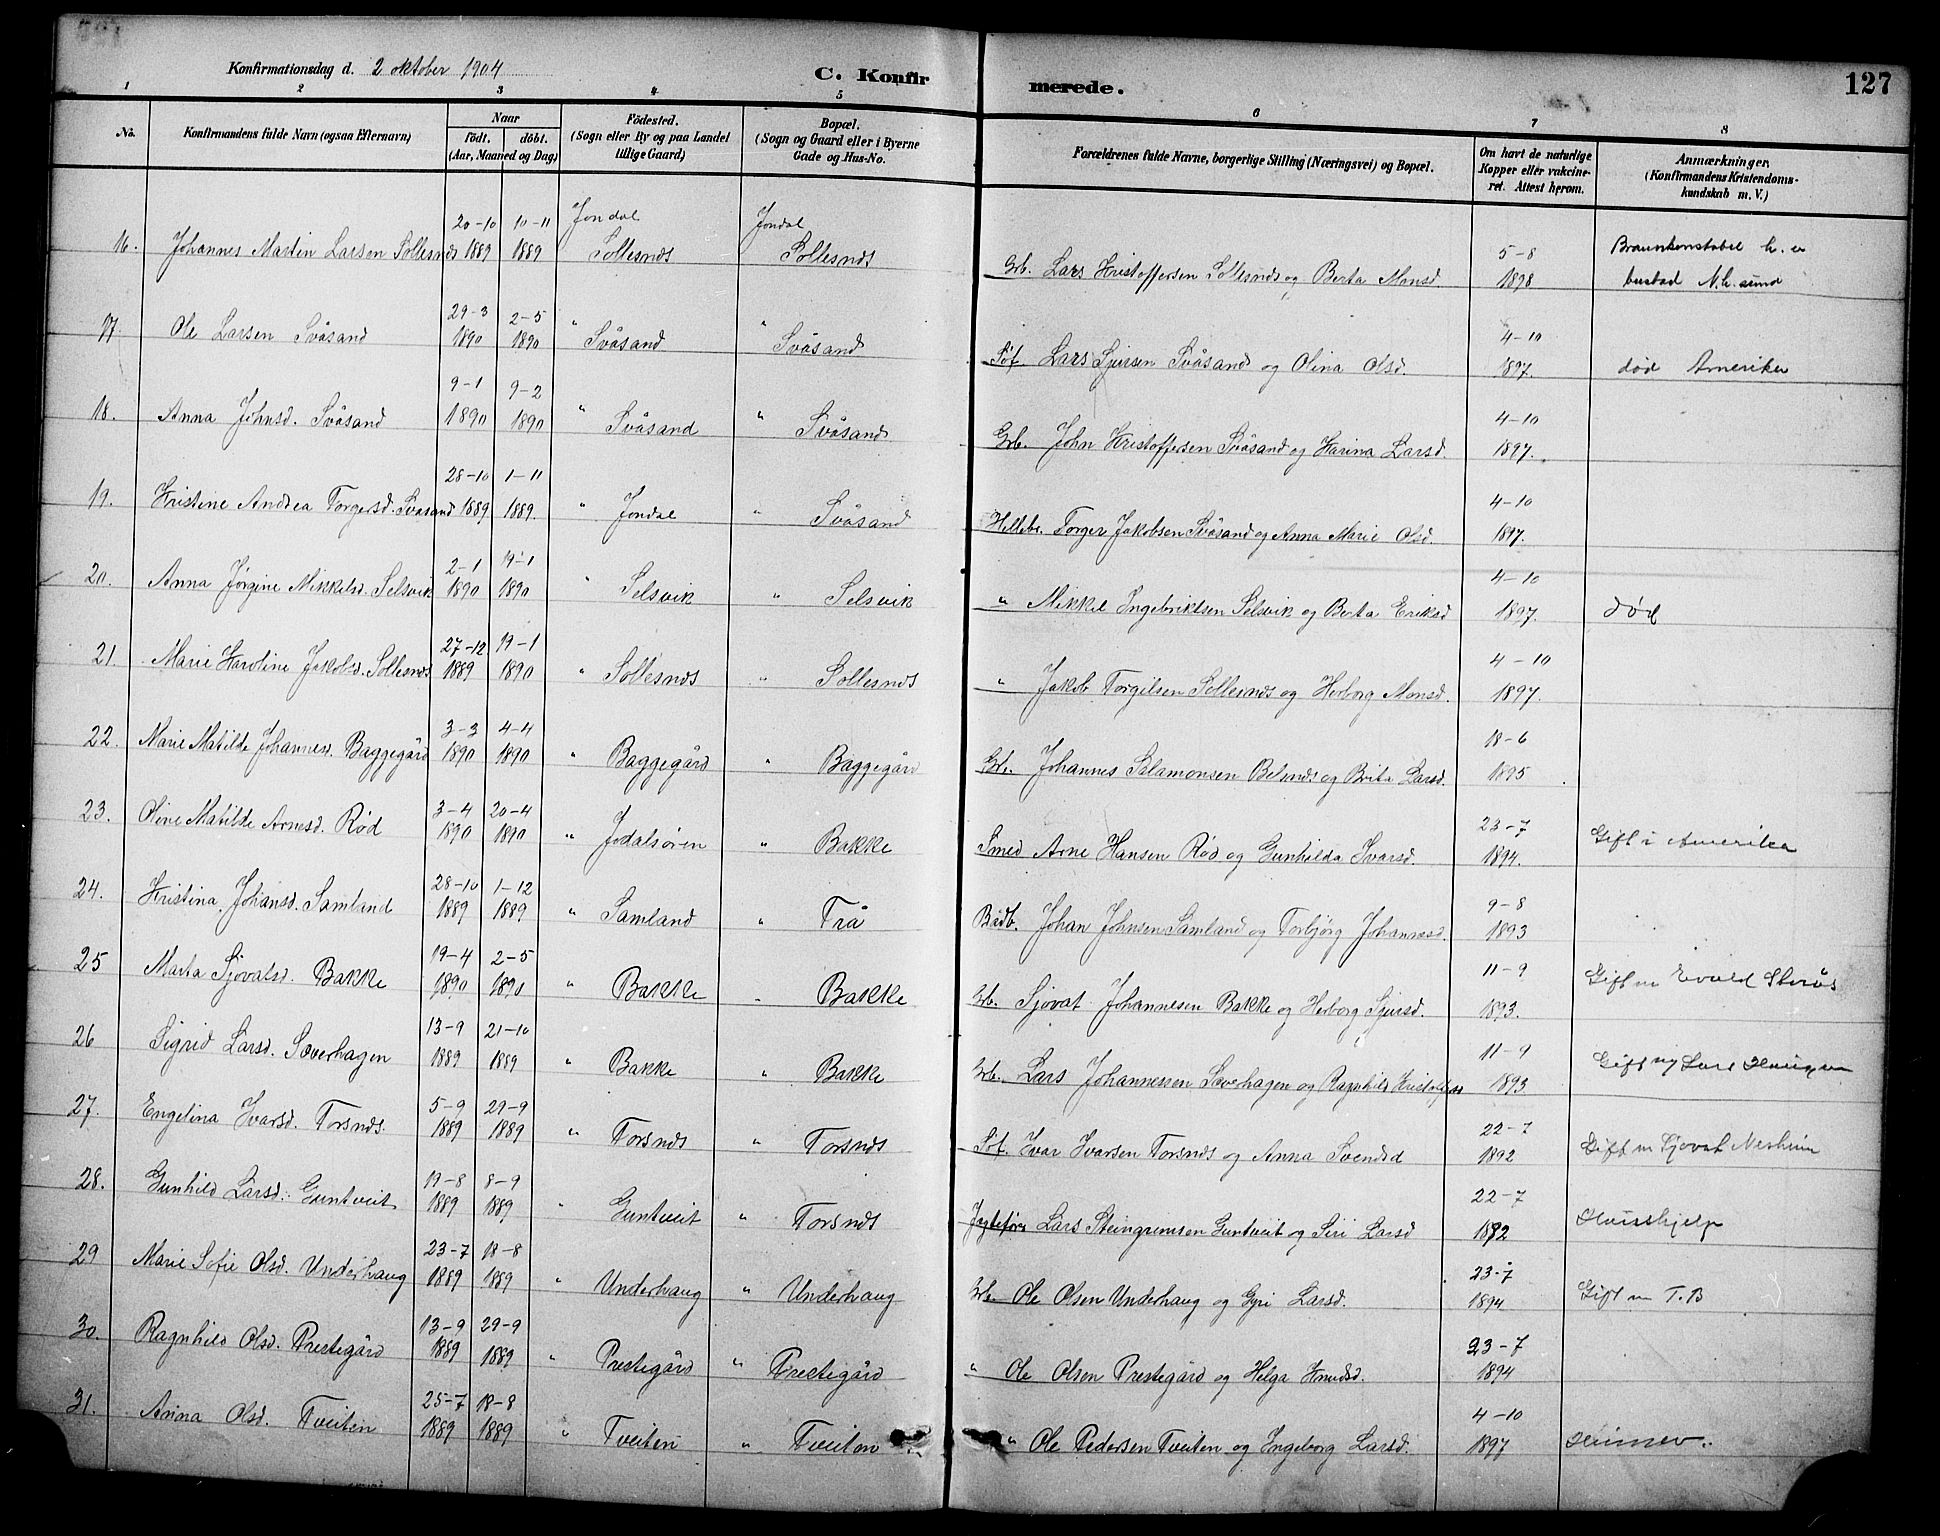 Konfirmationsdag d. 2 oktober 1904
C. Konfirmerede.
127
1 2 3 4 5 6 7 8
No. Konfirmandens fulde Navn (ogsaa Efternavn) Naar födt. döbt. (Aar, Maaned og Dag) Födested. (Sogn eller By og paa Landet tillige Gaard) Bopæl. (Sogn og Gaard eller i Byerne Gade og Hus-No. Forældrenes fulde Navne, borgerlige Stilling (Næringsvei) og Bopæl. Om havt de naturlige Kopper eller vakcineret. Attest herom. Anmærkninger. (Konfirmandens Kristendomskundskab m. V.)
16. Johannes Martin Larsen Sollesnæs 20-10 1889 10-11 1889 Jondal Sollesnæs Jondal Sollesnæs Grb. Lars Kristoffersen Sollesnæs og Berta Monsd. 5-8 1898 h. er bustad
17. Ole Larsen Svåsand 29-3 1890 2-5 1890 " Svåsand " Svåsand Søf. Lars Sjursen Svåsand og Olina Olsd. 4-10 1897. død Amerika
18. Anna Johnsd. Svåsand 9-1 1890 9-2 1890 " Svåsand " Svåsand Grb. John Kristoffersen Svåsand og Karina Larsd. 4-10 1897.
19. Kristine Andrea Torgersd. Svåsand 28-10 1889 1-11 1889. " Jondal " Svåsand Torger Jakobsen Svåsand og Anna Marie Olsd. 4-10 1897.
20. Anna Jørgine Mikkelsd. Selsvik 2-1 1890 19-1 1890 " Selsvik " Selsvik " Mikkel Ingebriktsen Selsvik og Berta Eriksd 4-10 1897. død
21. Marie Karoline Jakobsd. Sollesnæs 27-12 1889 19-1 1890 " Sollesnæs " Sollesnæs " Jakob Torgilsen Sollesnæs og Herborg Monsd. 4-10 1897.
22. Marie Matilde Johannesd. Baggegård 3-3 1890 4-4 1890 " Baggegård " Baggegård Grb. Johannes Salamonsen Belsnæs og Brita Larsd. 18-6 1895
23. Oline Matilde Arnesd. Rød 3-4 1890 20-4 1890 " Jodalsøren " Bakke Smed Arne Hansen Rød og Gunhilda Ivarsd. 23-7 1894. Gift i Amerika
24. Kristina Johansd. Samland 28-10 1889 1-12 1889 " Samland " Trå Bådb. Johan Johnsen Samland og Torbjørg Johannesd. 9-8 1893
25 Marta Sjovatsd. Bakke 19-4 1890 2-5 1890 " Bakke " Bakke Grb. Sjovat Johannesen Bakke og Herborg Sjursd. 11-9 1893. Gift m Evald
26 Sigrid Larsd. Sæverhagen 13-9 1889 21-10 1889 " Bakke " Bakke Grb. Lars Johannessen Sæverhagen og Ragnhild 11-9 1893 Gift m
27. Engelina Ivarsd. Torsnæs. 5-9 1889 29-9 1889 " Torsnæs " Torsnæs Søf. Ivar Ivarsen Torsnæs og Anna Svendsd 22-7 1892 Gift m Sjovat
28. Gunhild Larsd. Guntveit 19-8 1889 8-9 1889 " Guntveit " Torsnæs Lars Steingrimsen Guntveit og Siri Larsd 22-7 1892 Husshjelp
29 Marie Sofie Olsd. Underhaug 23-7 1889 18-8 1889 " Underhaug " Underhaug Grb. Ole Olsen Underhaug og Gyri Larsd. 23-7 1894 Gift m T.B
30. Ragnhild Olsd. Prestegård 13-9 1889 29-9 1889 " Prestegård " Prestegård " Ole Olsen Prestegård og Helga Knudsd. 23-7 1894
31. Anna Olsd. Tveiten 25-7 1889 18-8 1889 " Tveiten " Tveiten " Ole Pedersen Tveiten og Ingeborg Larsd. 4-10 1897